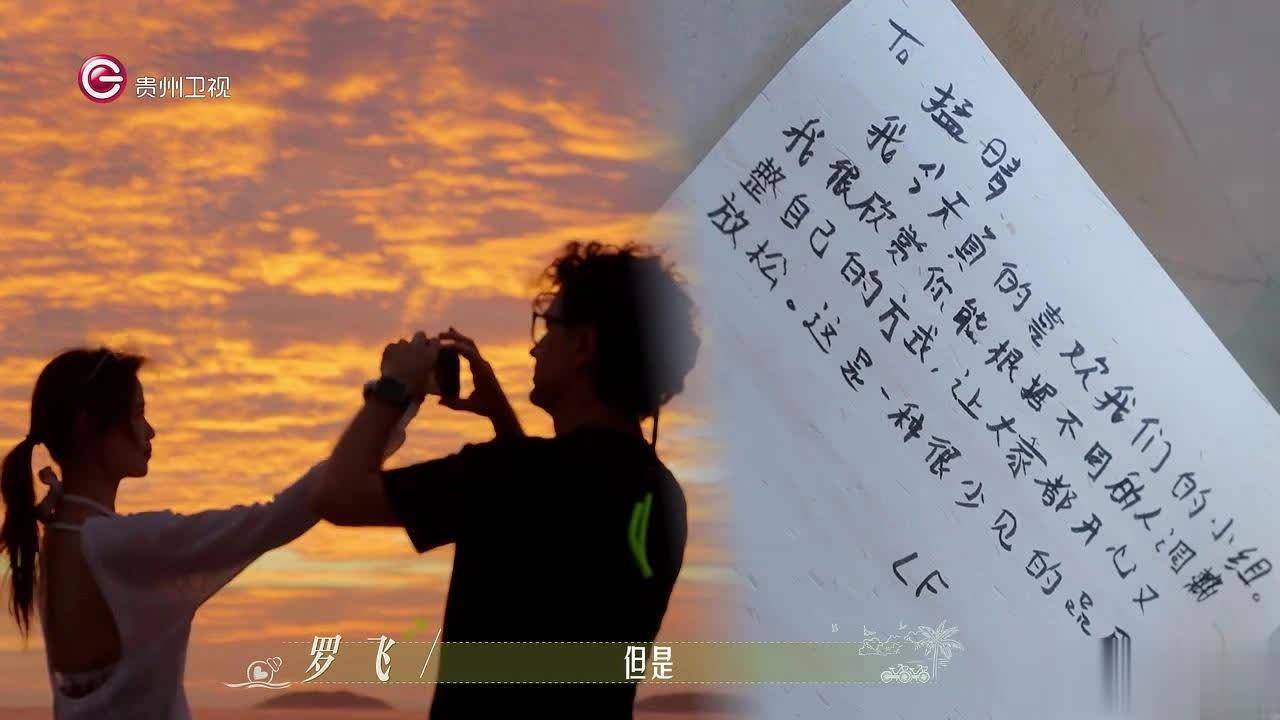 贵州卫视
To
猛晴
我今天真的喜欢我们的小组。
我很欣赏你能根据不同的人调
整自己的方式，让大家都开心又
放松。这是一种很少见的品
LF
罗飞/
但是